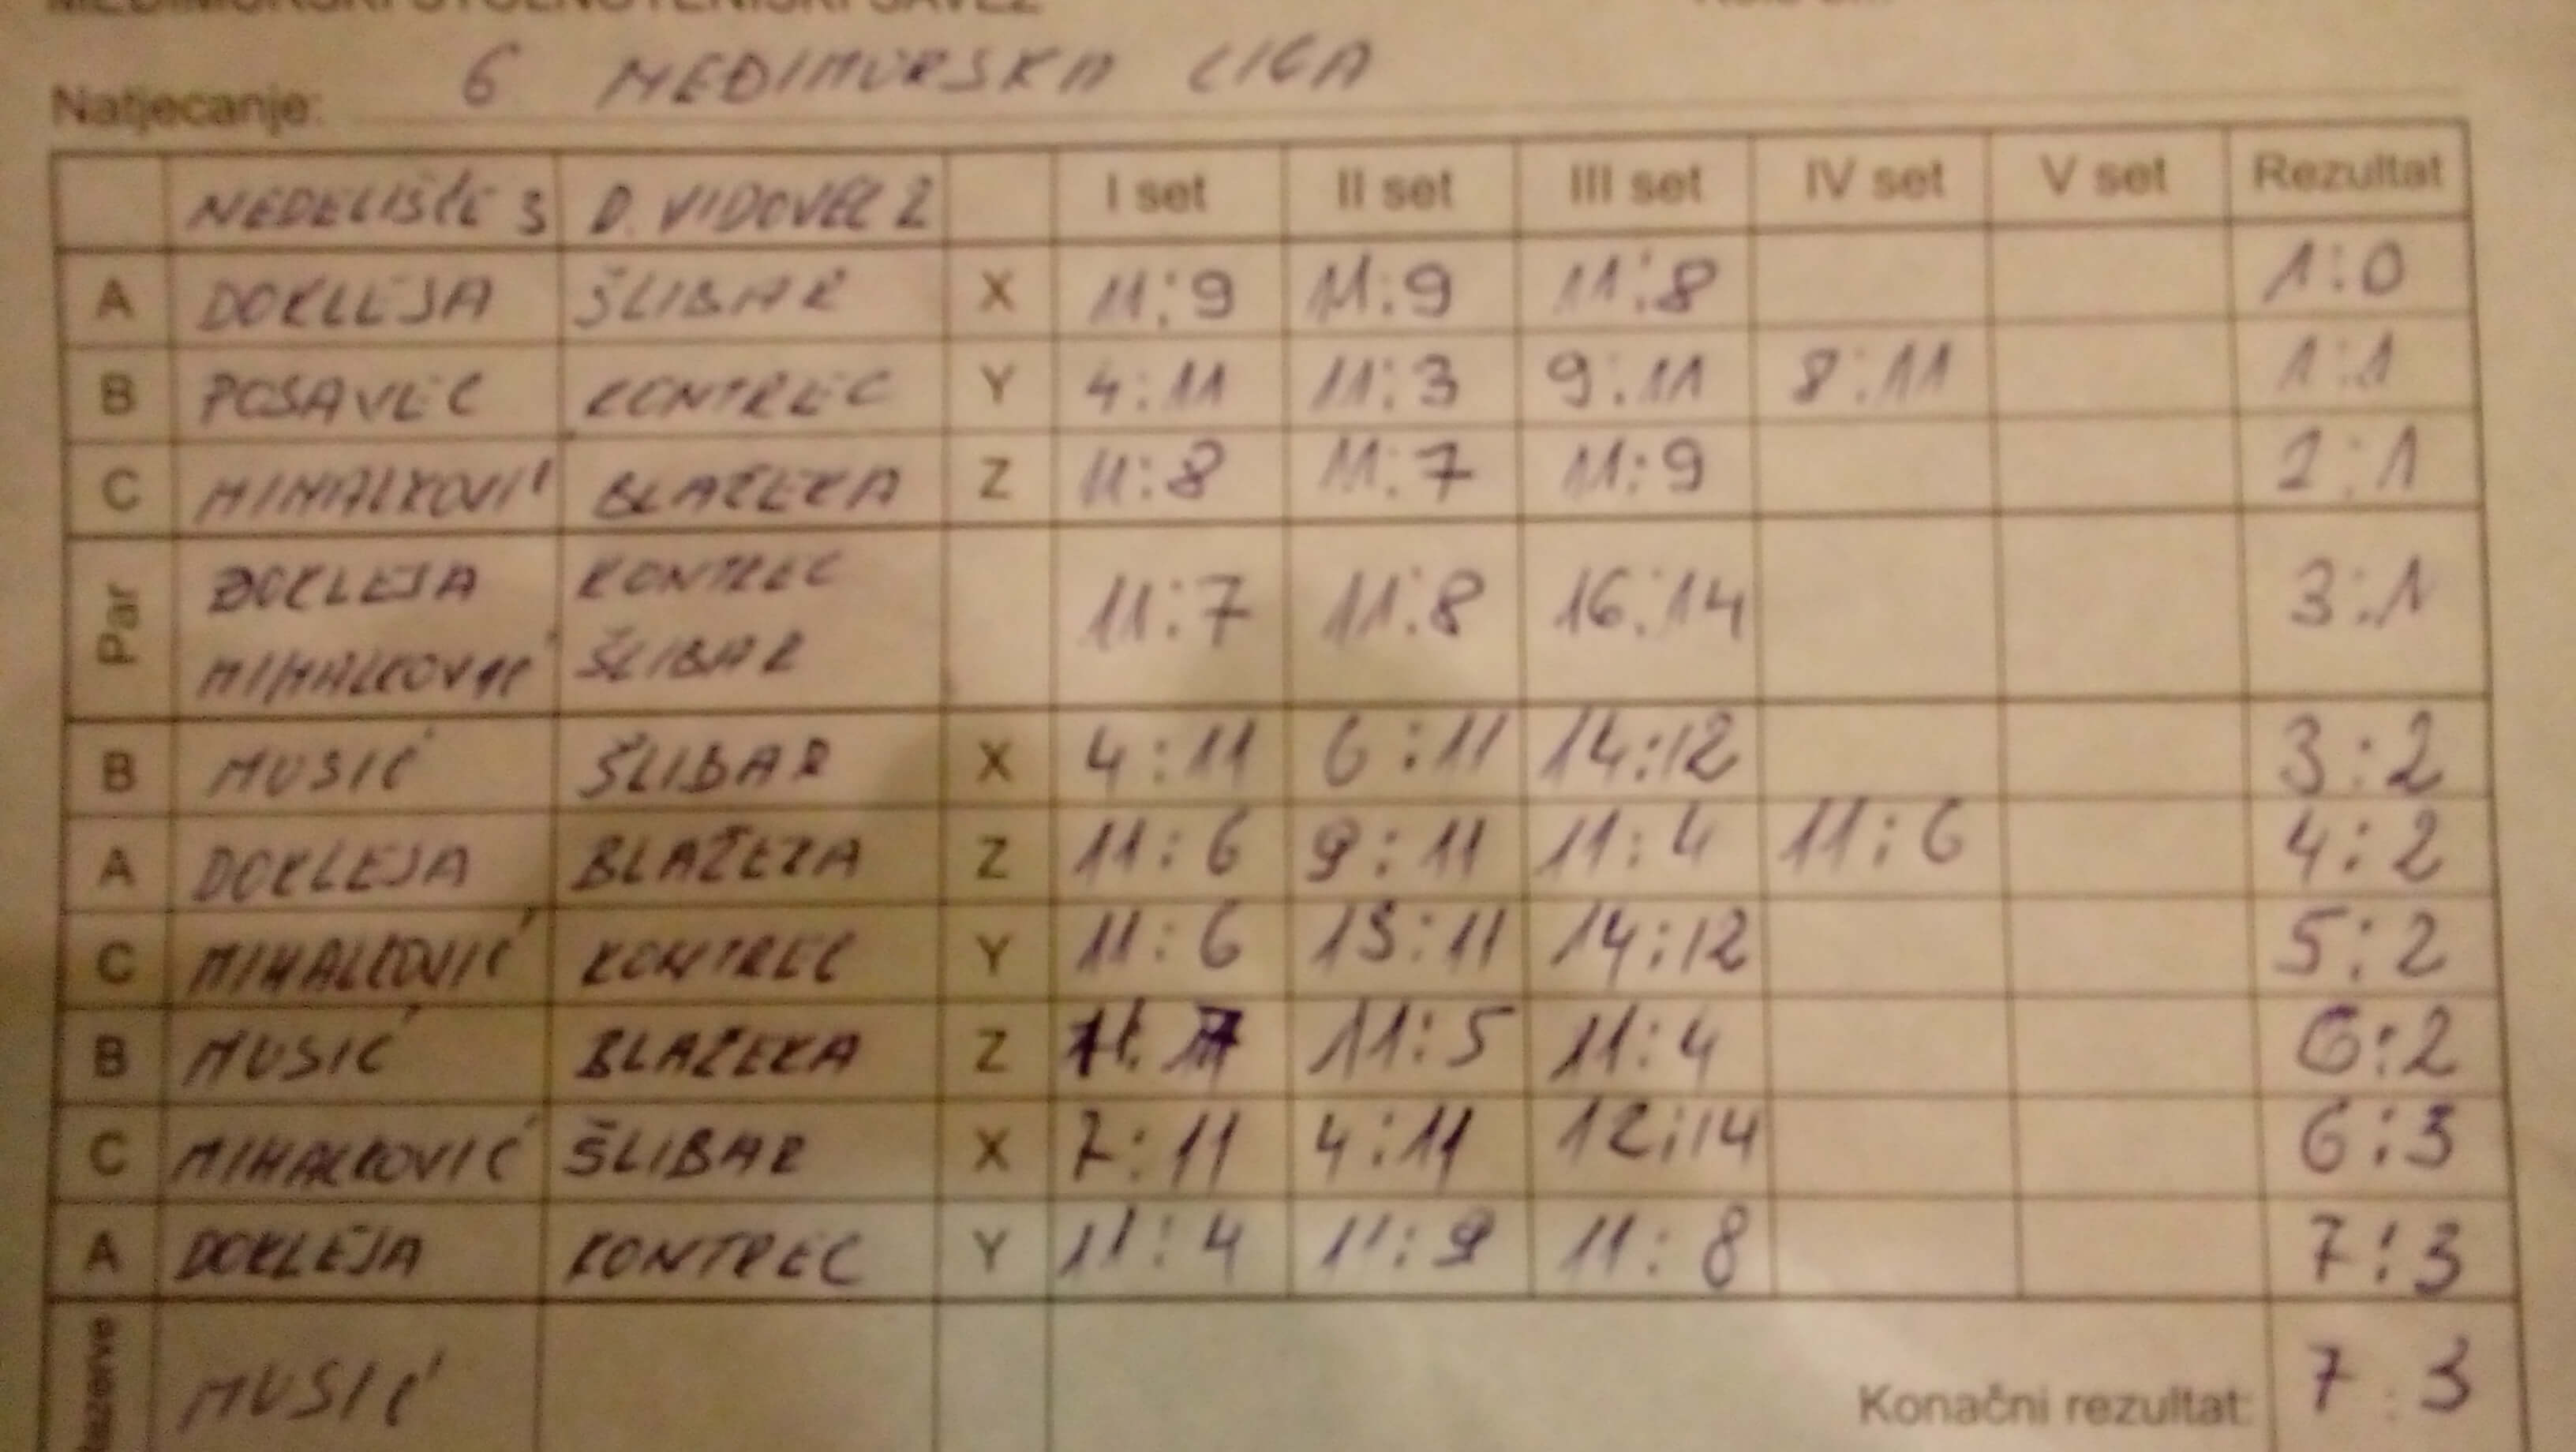 MEĐIMURSKI STOLNOTENISKI SAVEZ
Natjecanje: 6 MEĐIMURSKA LIGA
NEDELIŠĆE 3 D. VIDOVEC 2 I set II set III set IV set V set Rezultat
A DOKLEJA ŠLIBAR X 11:9 11:9 11:8 1:0
B POSAVEC KONTREC Y 4:11 11:3 9:11 8:11 1:1
C MIHALKOVIĆ BLAŽEKA Z 11:8 11:7 11:9 2:1
Par DOKLEJA KONTREC 11:7 11:8 16:14 3:1
MIHALKOVIĆ ŠLIBAR
B MUSIĆ ŠLIBAR X 4:11 6:11 14:12 3:2
A DOKLEJA BLAŽEKA Z 11:6 9:11 11:4 11:6 4:2
C MIHALKOVIĆ KONTREC Y 11:6 13:11 14:12 5:2
B MUSIĆ BLAŽEKA Z 11:5 11:4 6:2
C MIHALKOVIĆ ŠLIBAR X 7:11 4:11 12:14 6:3
A DOKLEJA KONTREC Y 11:4 11:9 11:8 7:3
MUSIĆ Konačni rezultat: 7:3